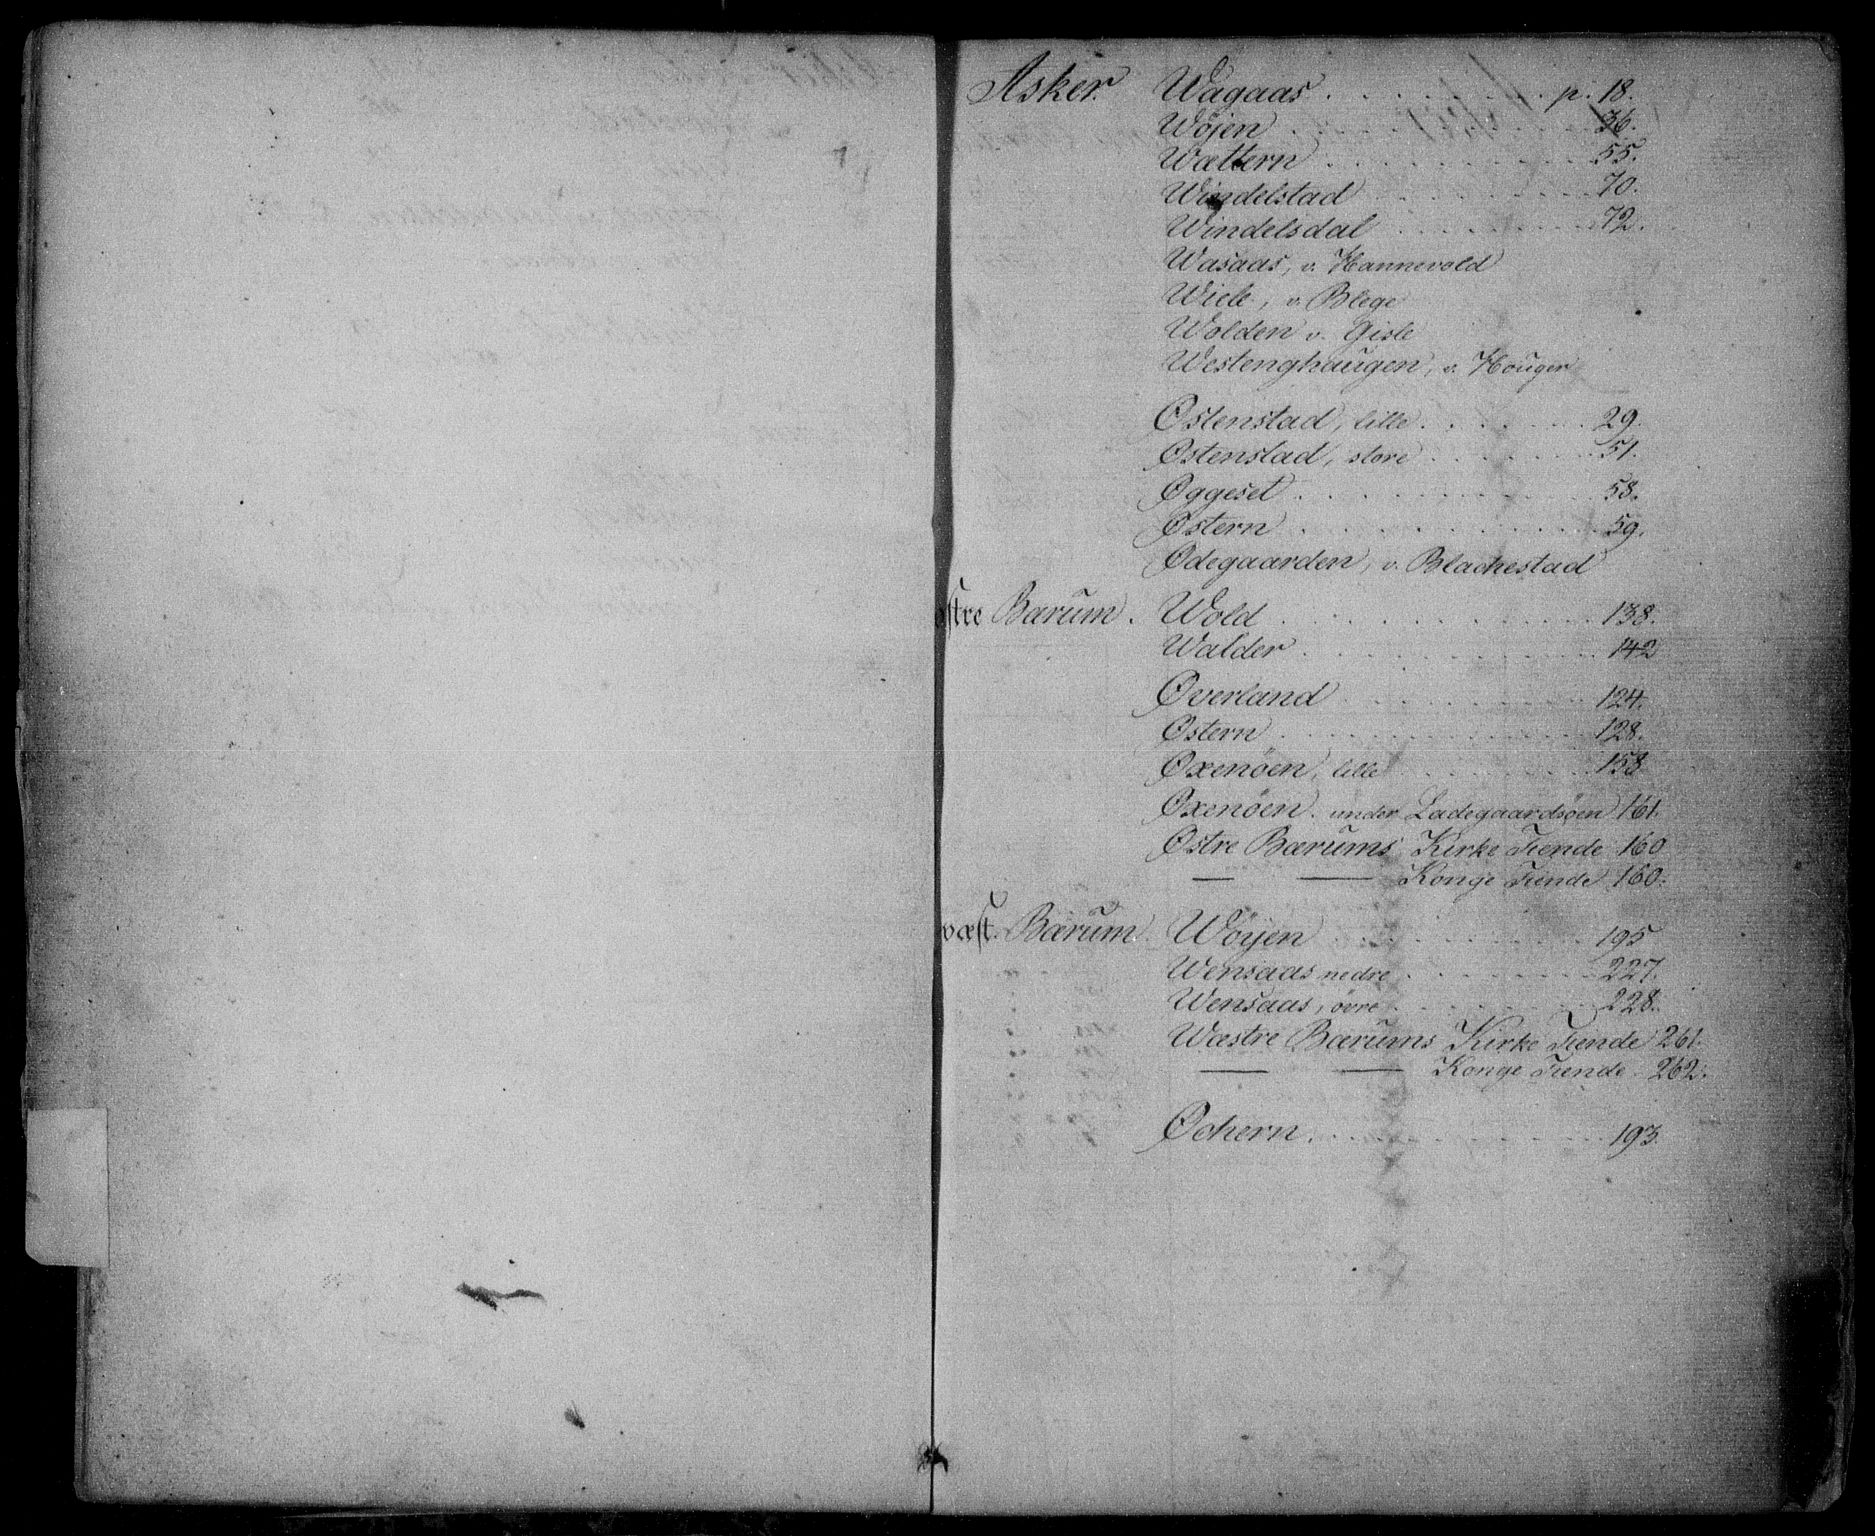 Asker. Wagaas . . . . . . . . p. 18.
Wøjen . . . . . . . . 36.
Wættern . . . . . . . . 55.
Windelstad . . . . . . . . 70.
Windelsdal . . . . . . . . 72.
Wasaas, v. Hannevold
Wiele, v. Blege
Wolden v. Gisle
Westenghaugen, v. Houger
Østenstad, lille . . . . . . . 29.
Østenstad, store . . . . . . . 51.
Øggeset . . . . . . . . 58.
Østern . . . . . . . . 59.
Ødegaarden, v. Blachestad
østre Bærum. Wold . . . . . . . . 138.
Walder . . . . . . . . 142
Øverland . . . . . . . . 124.
Østern . . . . . . . . 128.
Oxenøen, lille . . . . . . . 158
Oxenøen. under Ladegaardsøen 161.
Østre Bærums Kirke Tiende 160
— — Konge Tiende 160.
væst. Bærum. Wøyen . . . . . . . . 195
Wensaas nedre . . . . . . . 227.
Wensaas, øvre . . . . . . . 228.
Wæstre Bærums Kirke Tiende 261.
— — Konge Tiende. 262.
Øchern . . . . . . . . 193.